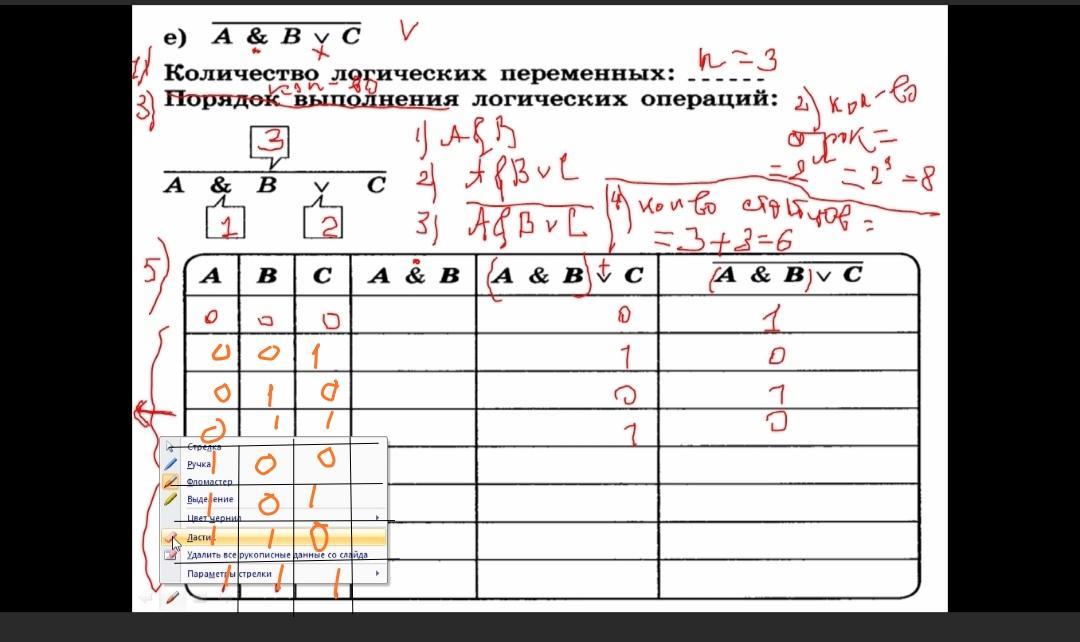 е) A & B v C V
1) Количество логических переменных: n = 3
кол-во
3) Порядок выполнения логических операций: 2) кол-во
3 1) A & B строк =
A & B v C 2) A & B v C = 2ⁿ = 2³ = 8
1 2 3) A & B v C 4) кол во столбцов =
= 3 + 3 = 6
5) A B C A & B (A & B) v C (A & B) v C
0 0 0 0 1
0 0 1 1 0
0 1 0 0 1
0 1 1 1 0
Стрелка
Ручка 1 0 0
Фломастер
Выделение 1 0 1
Цвет чернил
Ласти 1 1 0
Удалить все рукописные данные со слайда
Параметры стрелки 1 1 1